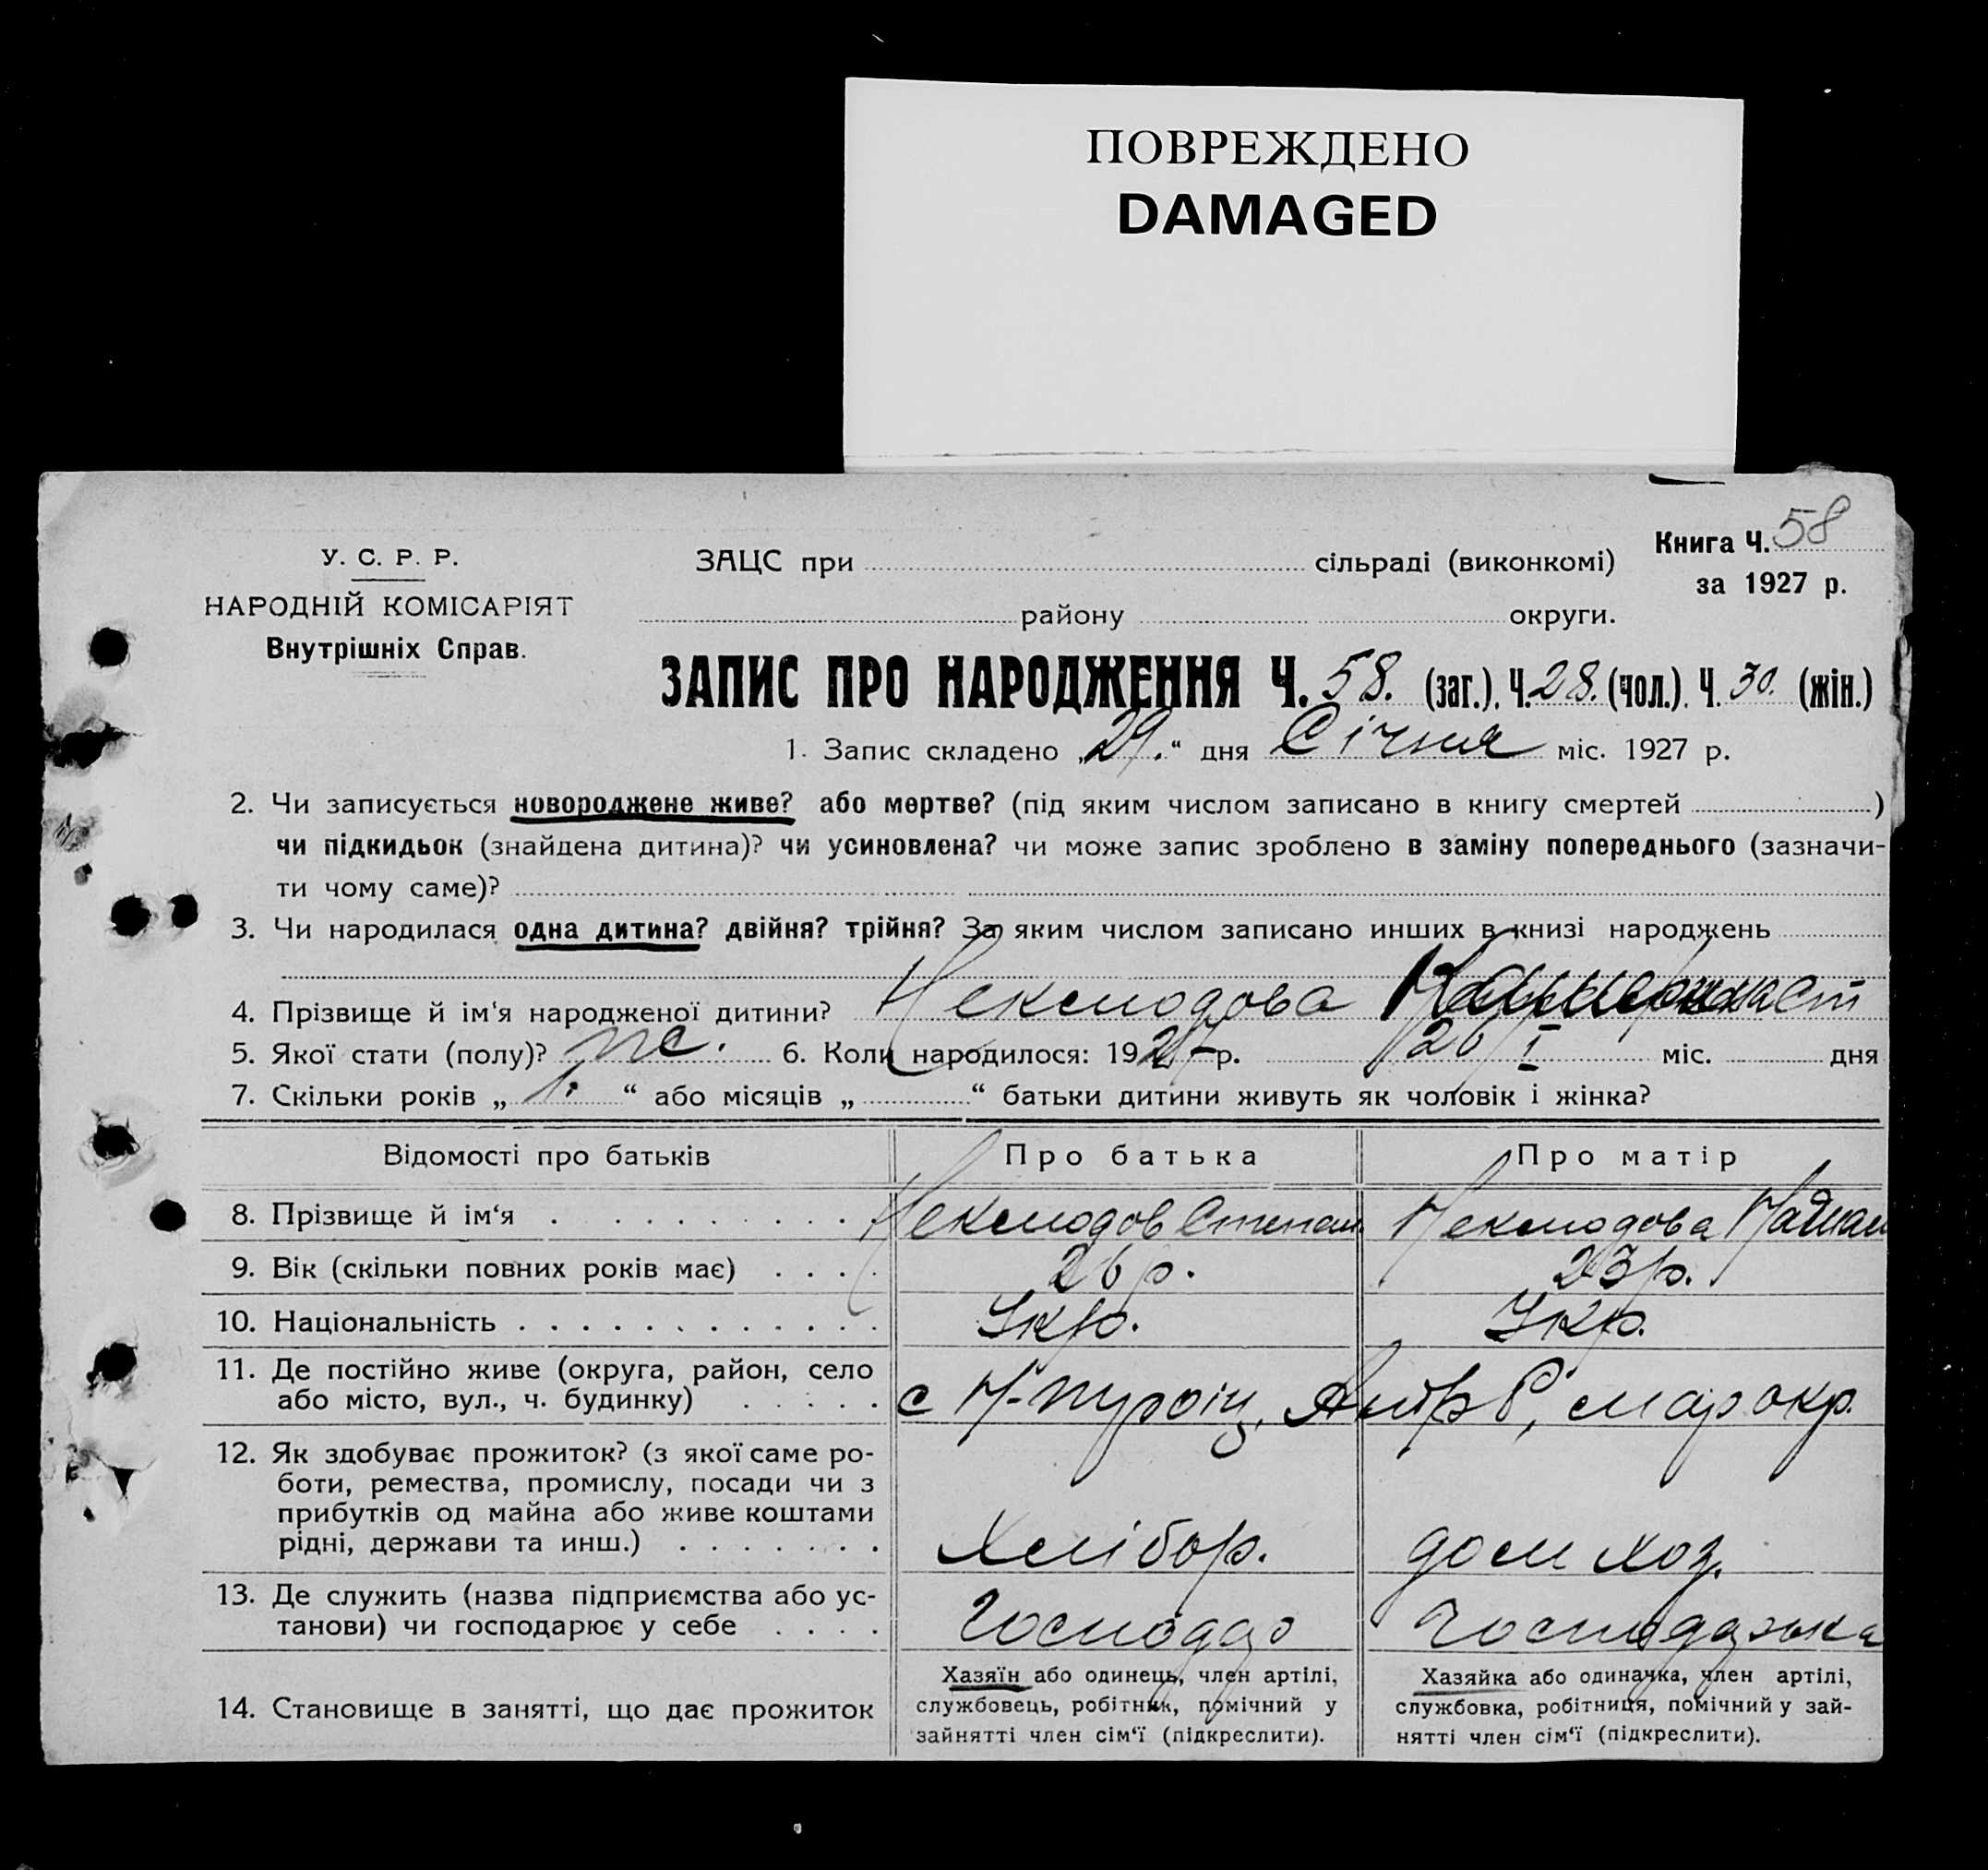 ПОВРЕЖДЕНО
DAMAGED
Книга Ч. 58
за 1927 р.
У. С. Р. Р.
НАРОДНІЙ КОМІСАРІЯТ
Внутрішніх Справ.
ЗАЦС при сільраді (виконкомі)
району округи.
ЗАПИС ПРО НАРОДЖЕННЯ Ч. 58. (заг.). Ч. 28. (чол.). Ч. 30. (жін.)
1. Запис складено „29.“ дня Січня міс. 1927 р.
2. Чи записується новороджене живе? або мертве? (під яким числом записано в книгу смертей )
чи підкидьок (знайдена дитина)? чи усиновлена? чи може запис зроблено в заміну попереднього (зазначи-
ти чому саме)?
3. Чи народилася одна дитина? двійня? трійня? За яким числом записано инших в книзі народжень
4. Прізвище й ім‘я народженої дитини?
5. Якої стати (полу)? ж. 6. Коли народилося: 1927 р. 26/I міс. дня
7. Скільки років „ 1. “ або місяців „ “ батьки дитини живуть як чоловік і жінка?
Відомості про батьків Про батька Про матір
8. Прізвище й ім‘я Степан
9. Вік (скільки повних років має) 26 р. 23 р.
10. Національність Укр. Укр.
11. Де постійно живе (округа, район, село
або місто, вул., ч. будинку) с мар окр.
12. Як здобуває прожиток? (з якої саме ро-
боти, ремества, промислу, посади чи з
прибутків од майна або живе коштами
рідні, держави та инш.) Хлібор. дом хоз.
13. Де служить (назва підприємства або ус-
танови) чи господарює у себе Господар Господарька
14. Становище в занятті, що дає прожиток
Хазяїн або одинець, член артілі,
службовець, робітник, помічний у
зайнятті член сім‘ї (підкреслити).
Хазяйка або одиначка, член артілі,
службовка, робітниця, помічний у зай-
нятті член сім‘ї (підкреслити).